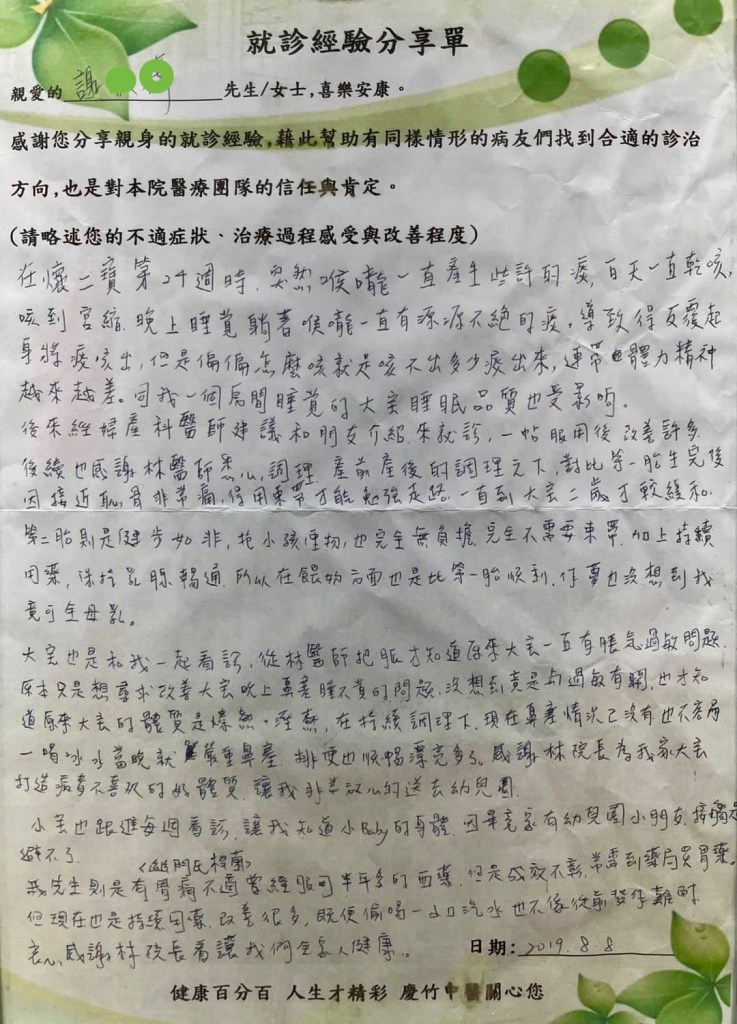 就診經驗分享單
親愛的 謝 先生/女士,喜樂安康。
感謝您分享親身的就診經驗,藉此幫助有同樣情形的病友們找到合適的診治
方向,也是對本院醫療團隊的信任與肯定。
(請略述您的不適症狀、治療過程感受與改善程度)
在懷二寶第24週時,突然喉嚨一直產生些許的痰,白天一直乾咳,
咳到宮縮,晚上睡覺躺著喉嚨一直有源源不絕的痰,導致得反覆起
身將痰咳出,但是偏偏怎麼咳就是咳不出多少痰出來,連帶體力精神
越來越差。同我一個房間睡覺的大寶睡眠品質也受影响。
後來經婦產科醫師建議和朋友介紹來就診,一帖服用後改善許多
後續也感謝林醫師悉心調理,產前產後的調理之下,對比第一胎生完後
因接近恥骨非常痛,得用束帶才能勉強走路,一直到大寶二歲才較緩和
第二胎則是健步如非,抱小孩重物,也完全無負擔,完全不需要束帶,加上持續
用藥,保持乳腺暢通,所以在餵奶方面也是比第一胎順利,作夢也沒想到我
竟可全母乳。
大寶也是和我一起看診,從林醫師把脈才知道原來大寶一直有脹氣過敏問題,
原本只是想尋求改善大寶晚上鼻塞睡不著的問題,沒想到竟是與過敏有關,也才知
道原來大寶的體質是燥熱、溼熱,在持續調理下,現在鼻塞情況已沒有也不容易
一喝冰水當晚就嚴重鼻塞,排便也順暢漂亮多了。感謝林院長為我家大寶
打造病毒不喜歡的好體質,讓我非常放心的送去幼兒園。
小羊也跟進每週看診,讓我知道小Baby的身體,因畢竟家有幼兒園小朋友,病觸是
避不了。
<幽門氏桿菌>
我先生則是有胃痛不適曾經服可半年多的西藥,但是成效不彰,常需到藥局買胃藥。
但現在也是持續用藥,改善很多,既使偷喝一小口汽水也不像從前發作難耐
衷心感謝林院長看讓我們全家人健康。
日期:2019.8.8
健康百分百 人生才精彩 慶竹中醫關心您